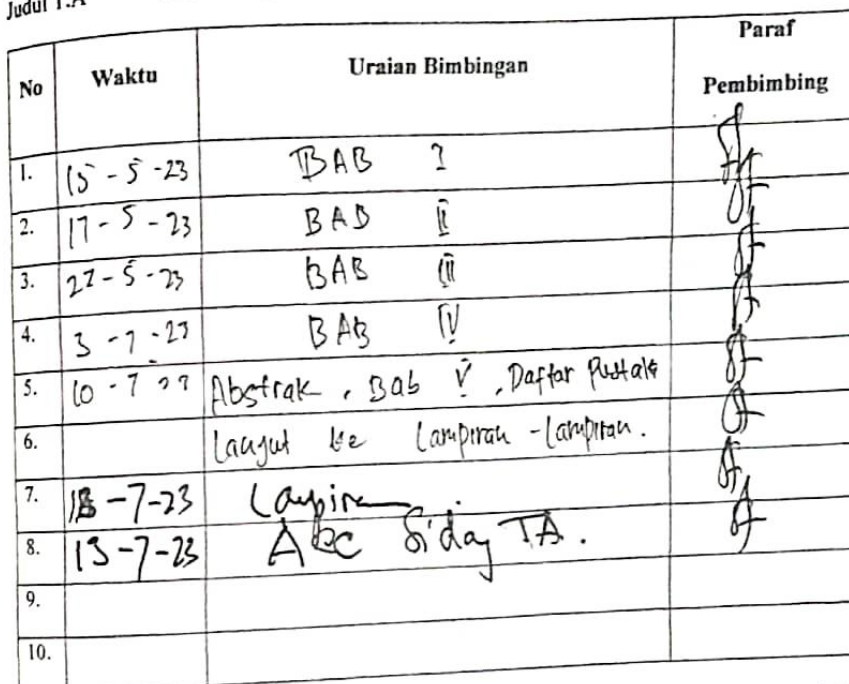 Judul T.A
No Waktu Uraian Bimbingan Paraf Pembimbing
1. 15-5-23 BAB I
2. 17-5-23 BAB II
3. 27-5-23 BAB III
4. 3-7-23 BAB IV
5. 10-7 Abstrak, Bab V, Daftar Pustaka
6. Lanjut ke Lampiran-Lampiran.
7. -7-23 Lampiran
8. -7-23 Acc Sidang TA.
9.
10.